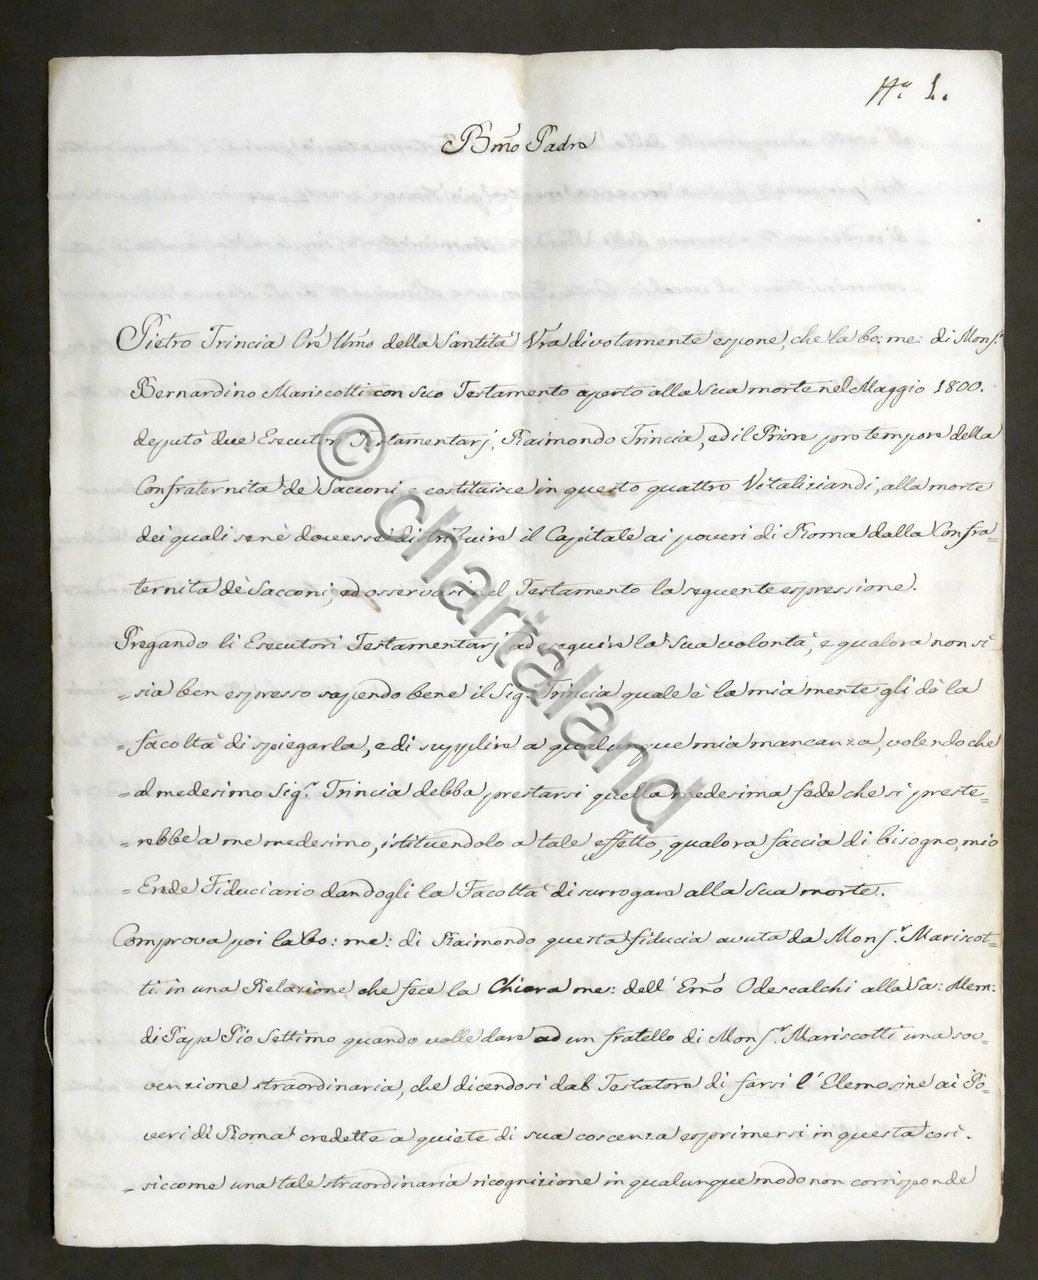 N.º 1.
Bm̃o Padre
Pietro Trincia Ore Um̃o della Santità Vr̃a divotamente espone, che la bo: me: di Mons.r
Bernardino Mariscotti con suo Testamento aperto alla sua morte nel Maggio 1800.
deputò due Esecutori Testamentarj, Raimondo Trincia, ed il Priore pro tempore della
Confraternita de' Sacconi, e costituisce in questo quattro Vitaliziandi, alla morte
dei quali se ne dovesse distribuire il Capitale ai poveri di Roma dalla Confra=
ternita de' Sacconi, ed osservasi nel Testamento la seguente espressione.
Pregando li Esecutori Testamentarj ad eseguire la sua volontà, e qualora non si
= sia ben espresso sapendo bene il Sig.r Trincia quale è la mia mente gli dò la
= facoltà di spiegarla, e di supplire a qualunque mia mancanza, volendo che
= al medesimo Sig.r Trincia debba prestarsi quella medesima fede che si preste=
= rebbe a me medesimo, istituendolo a tale effetto, qualora faccia di bisogno, mio
= Erede Fiduciario dandogli la Facoltà di surrogare alla sua morte.
Comprova poi la bo: me: di Raimondo questa fiducia avuta da Mons.r Mariscot=
ti in una Relazione, che fece la Chiara me: dell' Em̃o Odescalchi alla Sa: Mem:
di Papa Pio Settimo quando volle dare ad un fratello di Mons.r Mariscotti una sov=
venzione straordinaria, che dicendosi dal Testatore di farsi l'Elemosine ai Po=
veri di Roma credette a quiete di sua coscenza esprimersi in questa così.
= siccome una tale straordinaria ricognizione in qualunque modo non corrisponde
© chartaland